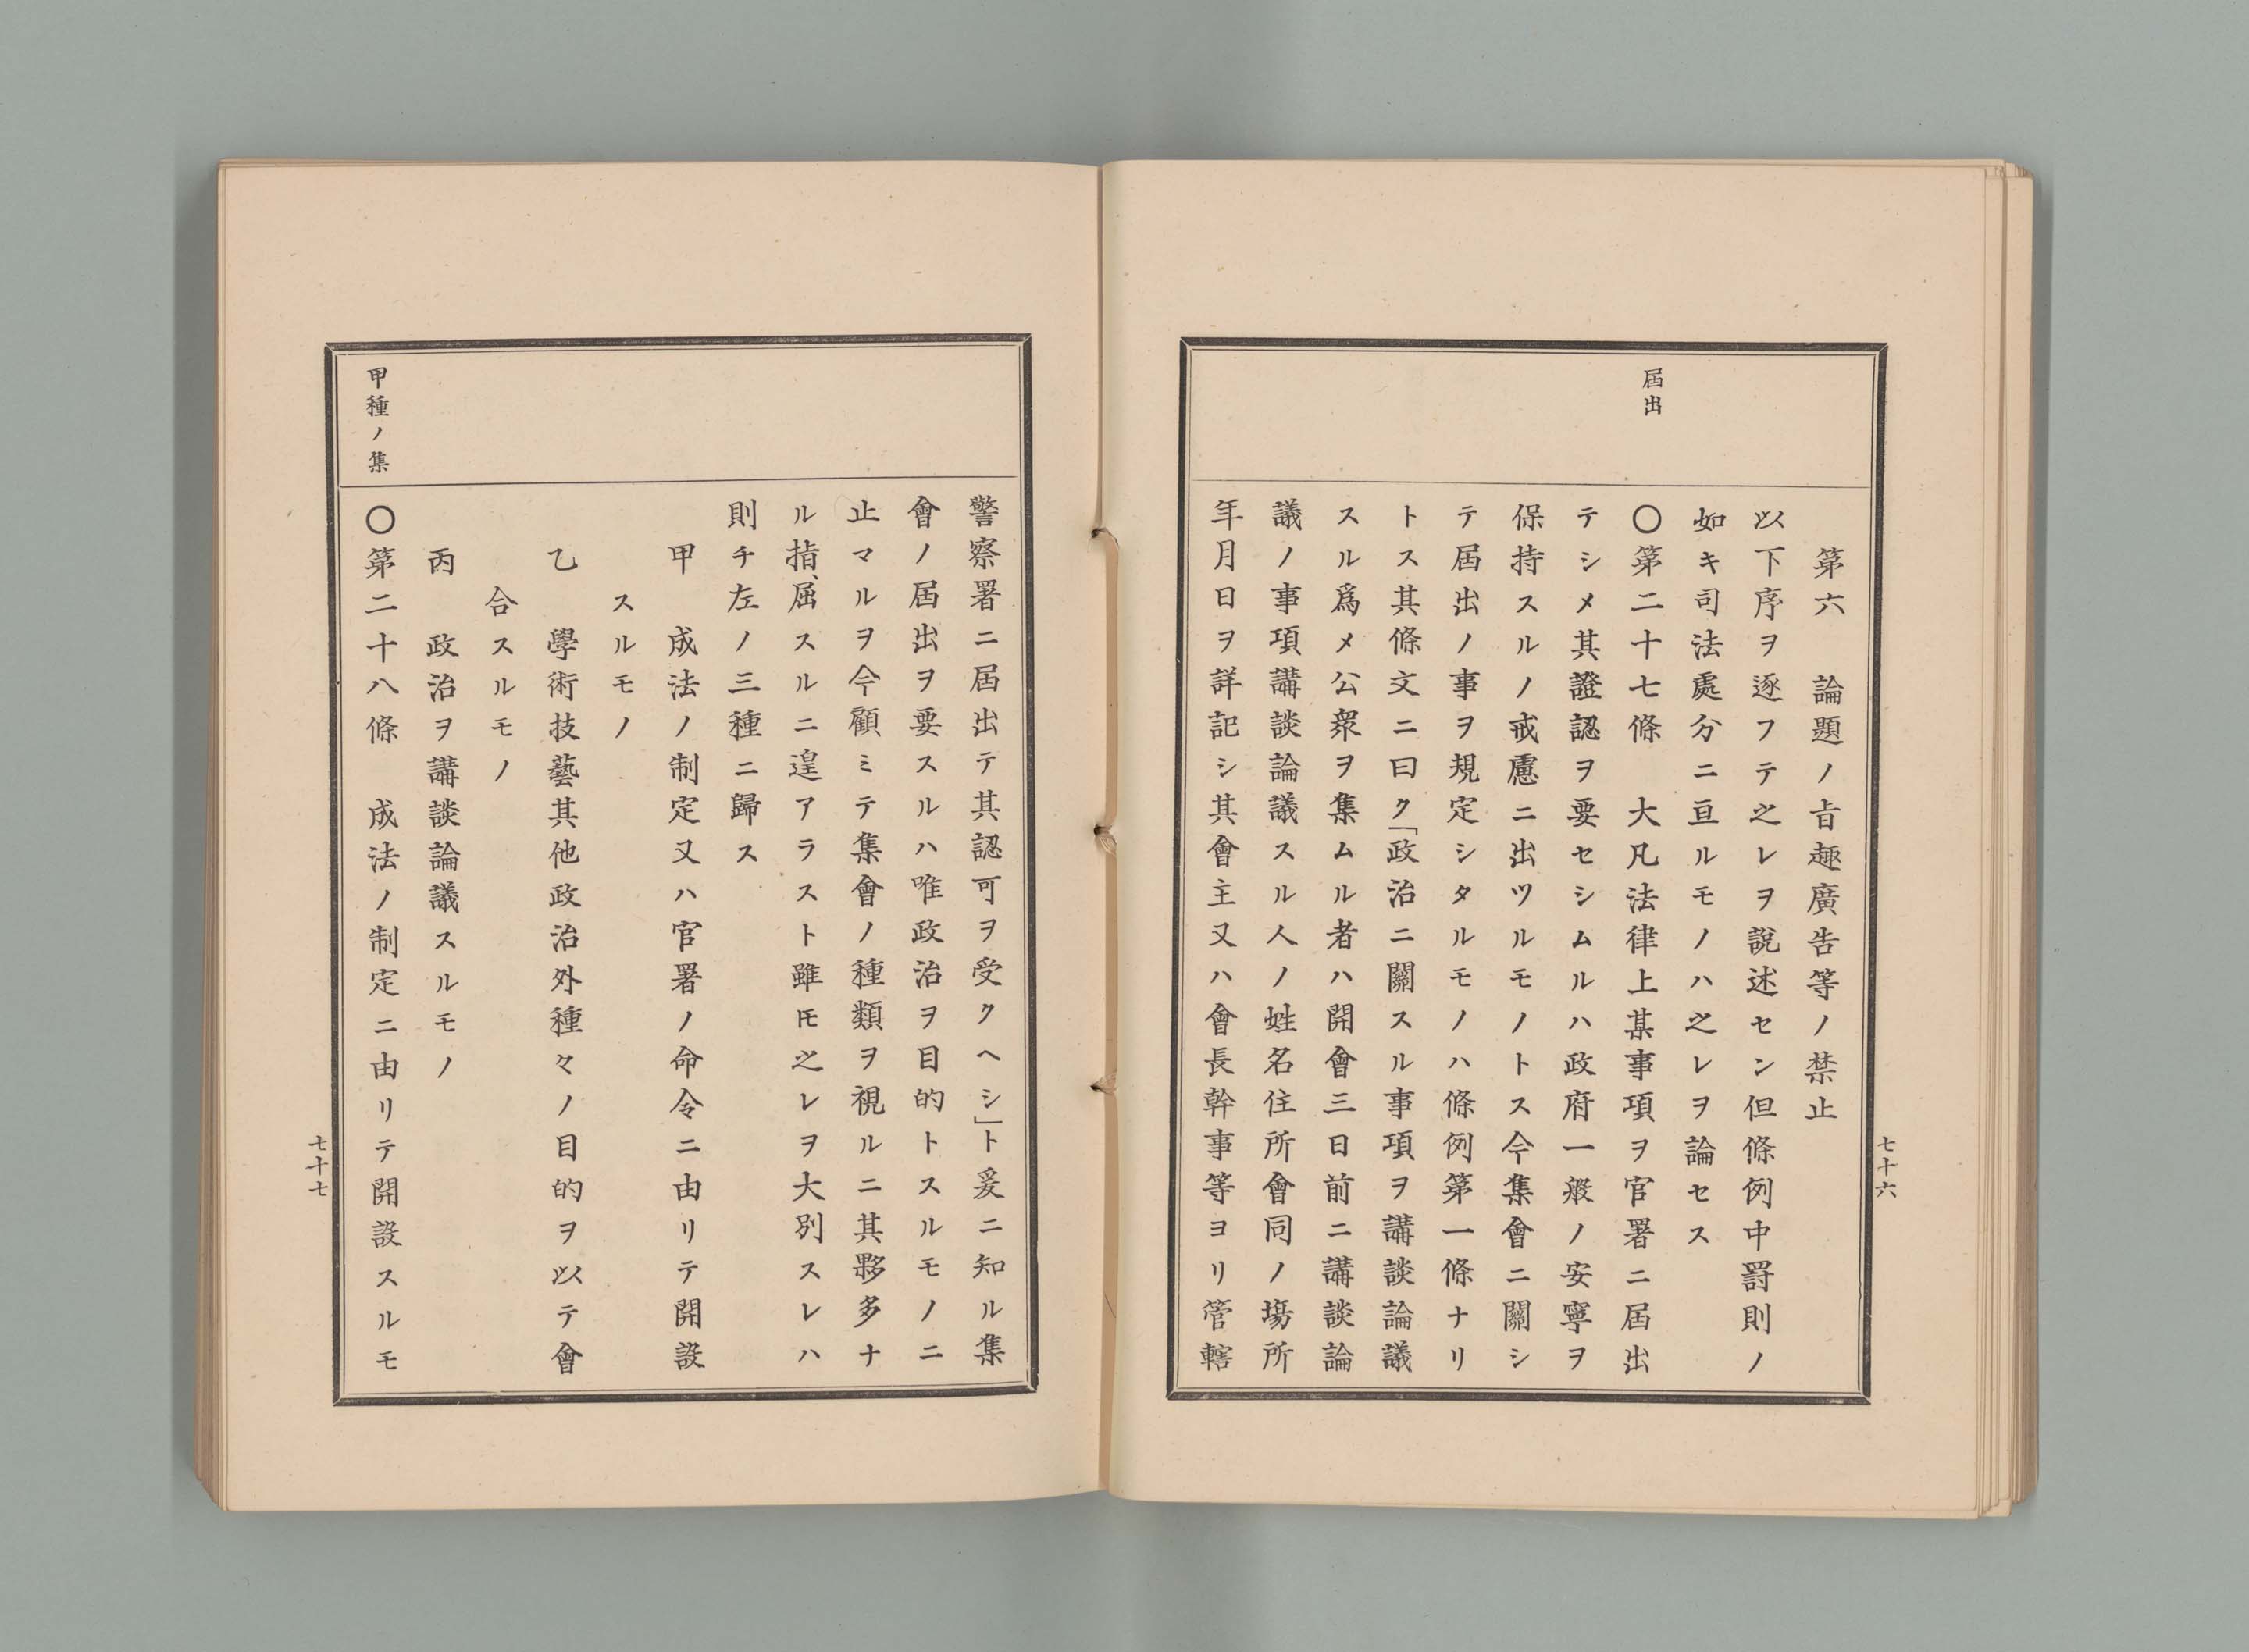 届出
第六　論題ノ旨趣廣告等ノ禁止
以下序ヲ逐フテ之レヲ說述セン但條例中罰則ノ
如キ司法處分ニ亘ルモノハ之レヲ論セス
〇第二十七條　大凡法律上某事項ヲ官署ニ届出
テシメ其證認ヲ要セシムルハ政府一般ノ安寧ヲ
保持スルノ戒慮ニ出ツルモノトス今集會ニ關シ
テ届出ノ事ヲ規定シタルモノハ條例第一條ナリ
トス其條文ニ曰ク「政治ニ關スル事項ヲ講談論議
スル爲メ公衆ヲ集ムル者ハ開會三日前ニ講談論
議ノ事項講談論議スル人ノ姓名住所會同ノ塲所
年月日ヲ詳記シ其會主又ハ會長幹事等ヨリ管轄
七十六
甲種ノ集
警察署ニ届出テ其認可ヲ受クヘシ」ト爰ニ知ル集
會ノ届出ヲ要スルハ唯政治ヲ目的トスルモノニ
止マルヲ今顧ミテ集會ノ種類ヲ視ルニ其夥多ナ
ル指、屈スルニ遑アラスト雖𪜈之レヲ大別スレハ
則チ左ノ三種ニ歸ス
甲　成法ノ制定又ハ官署ノ命令ニ由リテ開設
スルモノ
乙　學術技藝其他政治外種々ノ目的ヲ以テ會
合スルモノ
丙　政治ヲ講談論議スルモノ
〇第二十八條　成法ノ制定ニ由リテ開設スルモ
七十七